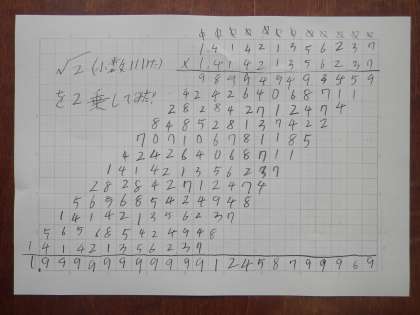 √2 (小数11ケタ)
を2乗してみた!
1.41421356237
×1.41421356237
989949493659
424264068711
282842712474
848528137422
707106781185
424264068711
141421356237
282842712474
565685424948
141421356237
565685424948
141421356237
1.9999999999912458799969